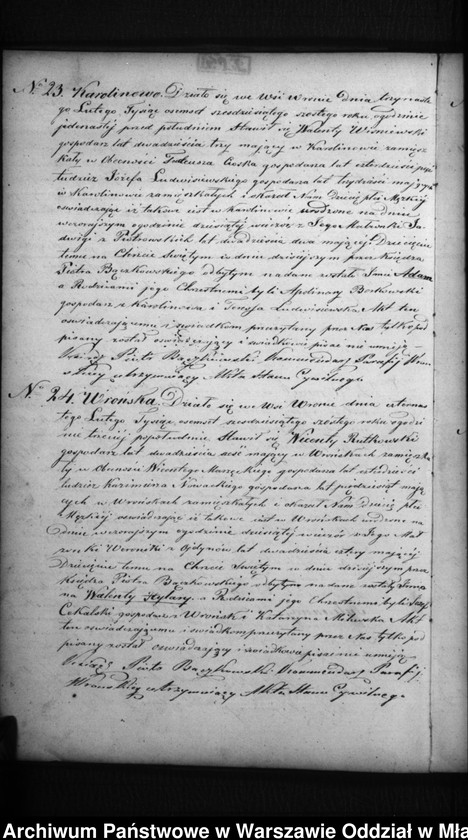 No 23. Karolinowo. Działo się we Wsi Wronie Dnia trzynaste
go Lutego Tysiąc osmset szesdziesiątego szostego roku o godzinie
jedenastej przed południem Stawił się Walenty Wisniewski
gospodarz lat dwadziescia trzy mający w Karolinowie zamiesz
kały w Obecnosci Tadeusza gospodarza lat czterdziesci
tudzież Józefa Ludwisiewskiego gospodarza lat trzydzieści mających
w Karolinowie zamieszkałych i okazał Nam Dziecię płci Męzkiej
oswiadczając iż takowe jest w Karolinowie urodzone na dniu
wczorajszym o godzinie dziewiątej wieczór z Jego Małżonki Ja
dwigi z Piotrowskich lat dwadziescia dwa mającej Dziecięciu
temu na Chrzcie Swiętym w dniu dzisiejszym przez Księdza
Piotra Bączkowskiego odbytym nadane zostało Imie Adam
a Rodzicami jego Chrzestnemi byli Apolinary Borkowski
gospodarz z Karolinowa i Teofila Ludwisiewska Akt ten
oswiadczającemu i swiadkom przeczytany przez Nas tylko pod
pisany został oswiadczający i swiadkowie pisać nie umieją
Xiądz Piotr Bączkowski Kommendarz Parafij Wron
skiej utrzymujący Akta Stanu Cywilnego
No 24. Wrońska. Działo się we Wsi Wronie dnia czterna
stego Lutego Tysiąc osmset szesdziesiątego szostego roku o godzi
nie trzeciej popołudniu Stawił się Wincenty Rutkowski
gospodarz lat dwadziescia szesc mający w Wronskach zamieszka
ły w Obecnosci Wincentego gospodarza lat czterdziesci
tudzież Kazimierza Nowackiego gospodarza lat pięcdziesiąt mają
cych w Wronskach zamieszkałych i okazał Nam Dziecię płci
Męzkiej oswiadczając iż takowe jest w Wronskach urodzone na
dniu wczorajszym o godzinie dziesiątej wieczór z Jego Mał
żonki Weroniki z lat dwadziescia cztery mającej
Dziecięciu temu na Chrzcie Swiętym w dniu dzisiejszym przez
Księdza Piotra Bączkowskiego odbytym nadane zostały Imio
na Walenty a Rodzicami jego Chrzestnemi byli
gospodarz z Wronsk i Katarzyna Akt
ten oswiadczającemu i swiadkom przeczytany przez Nas tylko pod
pisany został oswiadczający i swiadkowie pisać nie umieją
Xiądz Piotr Bączkowski Kommendarz Parafij
Wronskiej utrzymujący Akta Stanu Cywilnego
Archiwum Państwowe w Warszawie Oddział w Mła